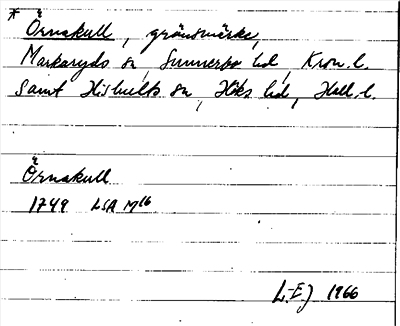 * Örnakull, gränsmärke,
Markaryds sn, Sunnerbo hd, Kron. l.
samt Hishults sn, Höks hd, Hall. l.
Örnakull
1749 LSA M16
L-EJ 1966